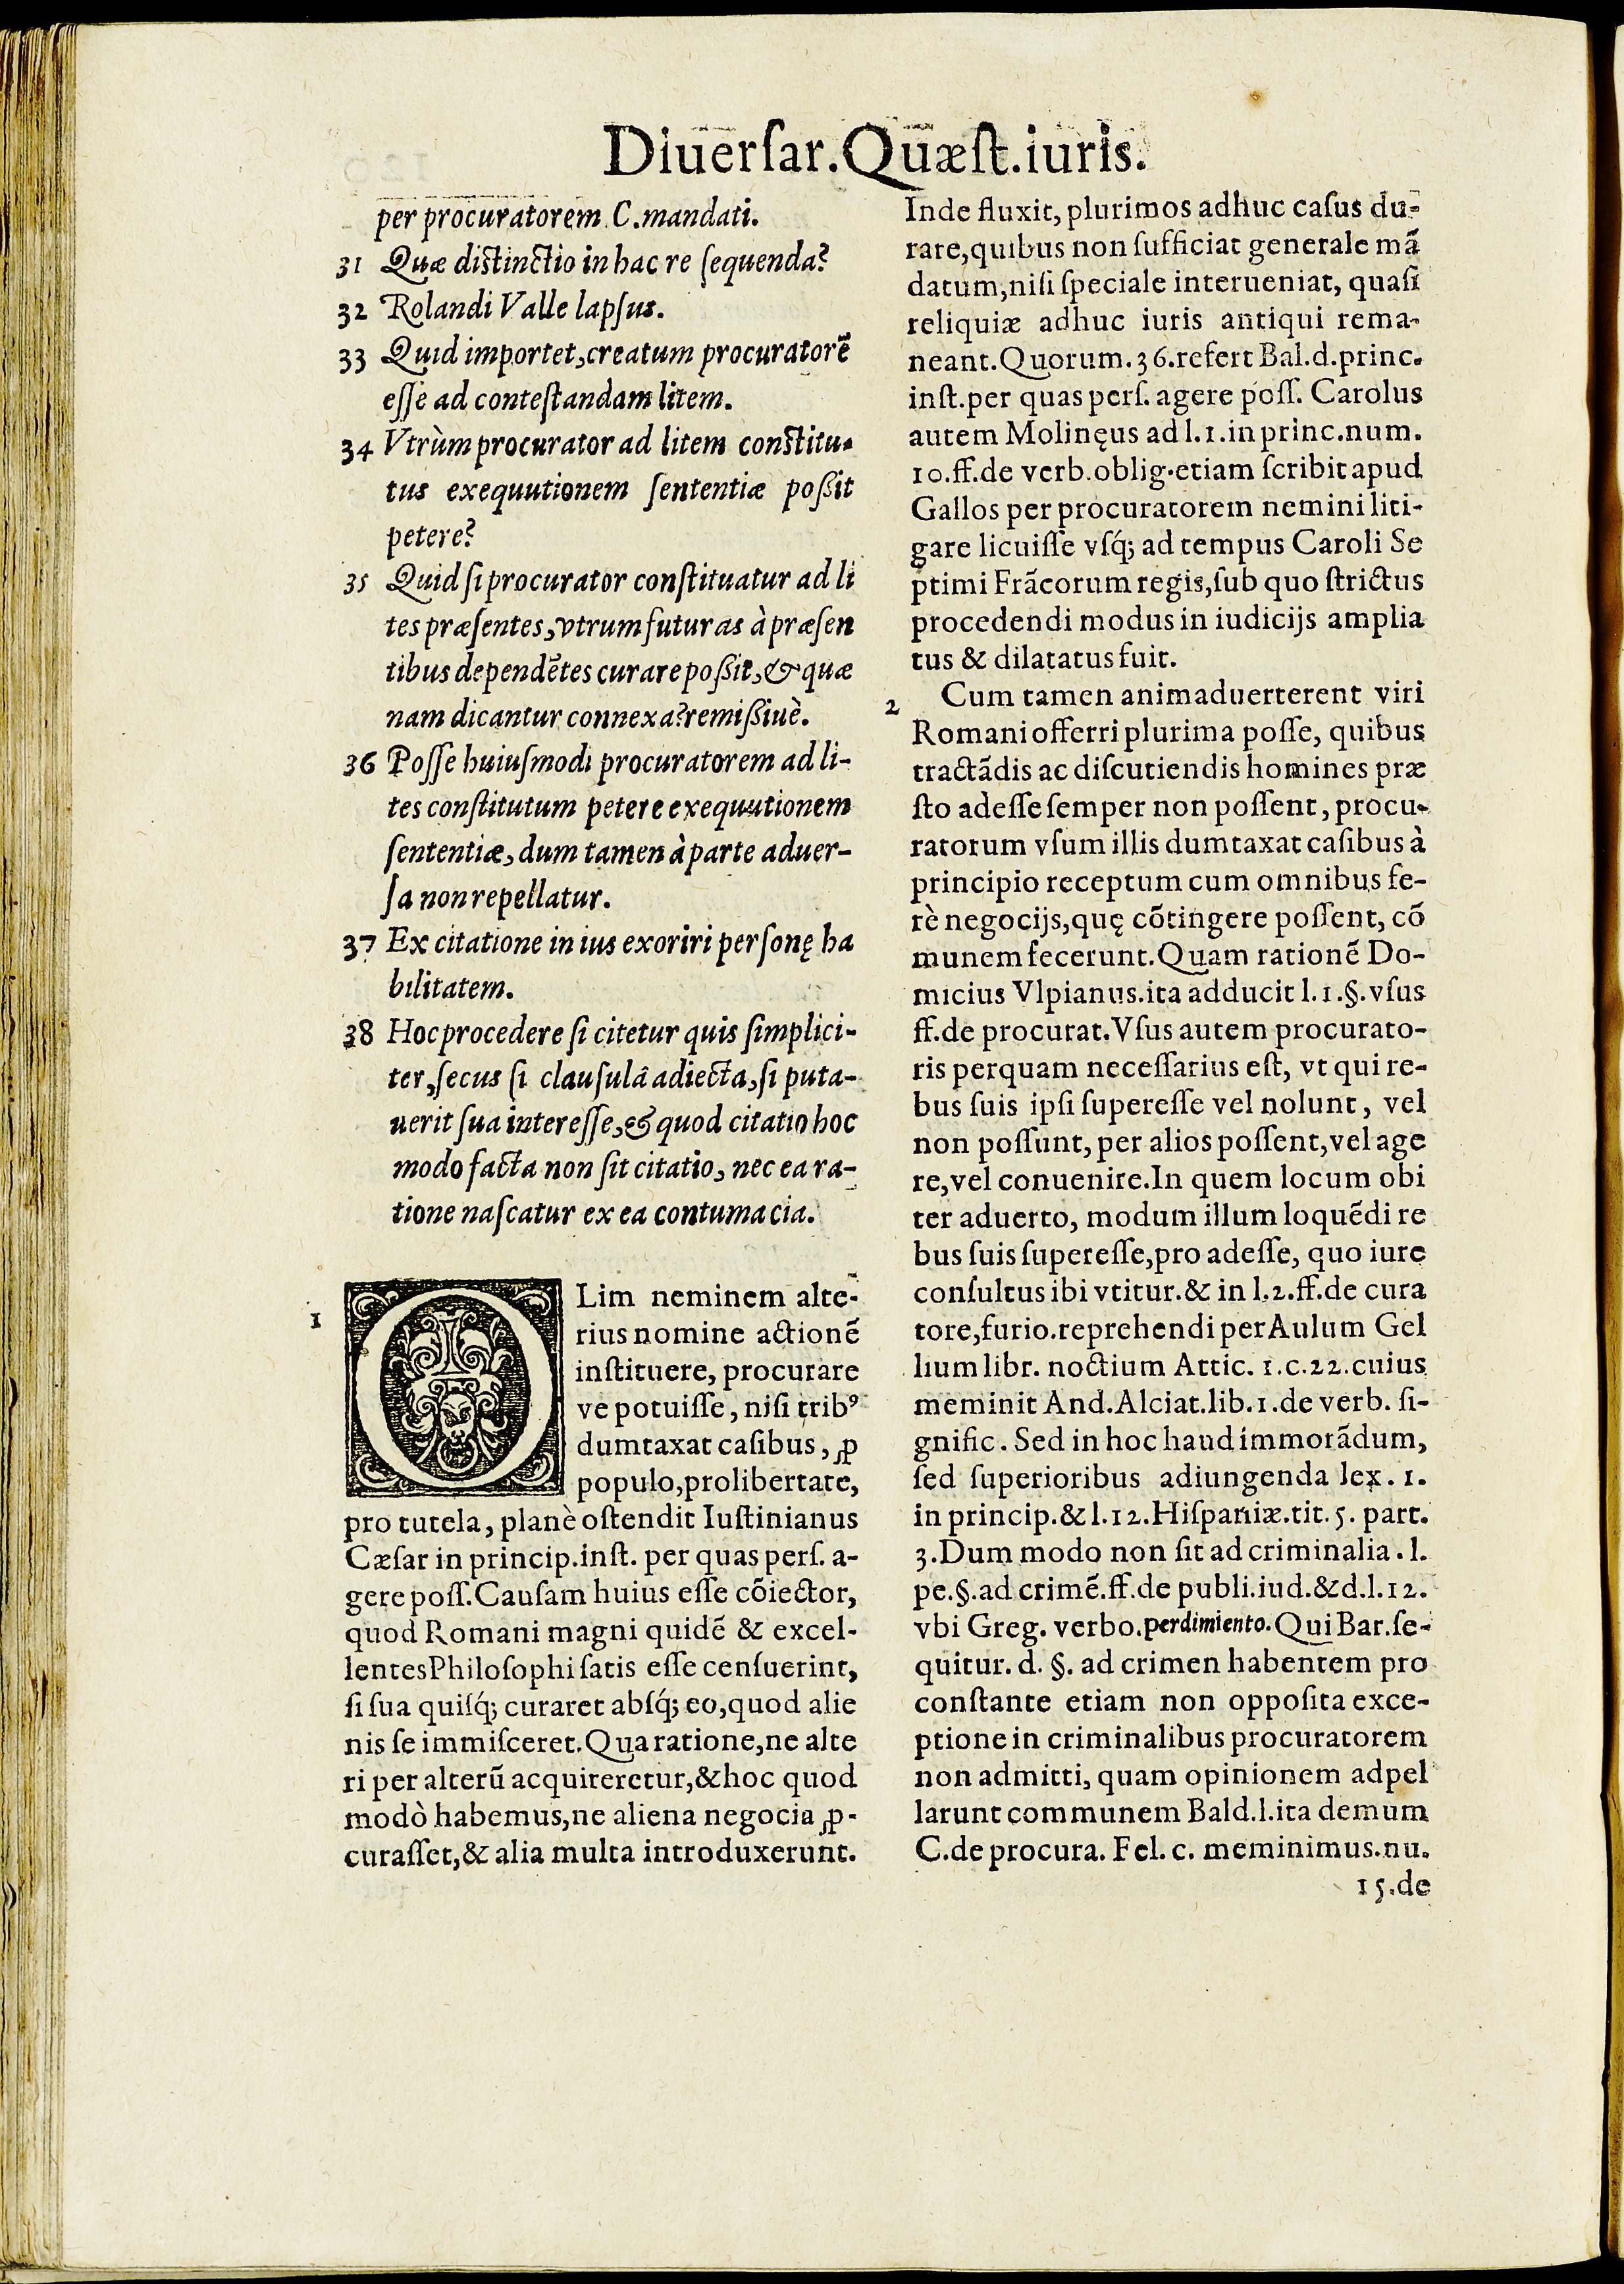 Diuerſar.Quæſt.iuris.
per procuratorem C.mandati.
31 Quæ diſtinctio in hac re ſequenda?
32 Rolandi Valle lapſus.
33 Quid importet,creatum procuratorẽ
eſſe ad conteſtandam litem.
34 Vtrùm procurator ad litem conſtitu-
tus exequutionem ſententiæ poßit
petere?
35 Quid ſi procurator conſtituatur ad li
tes præſentes,vtrum futuras à præſen
tibus dependẽtes curare poßit,& quæ
nam dicantur connexa?remißiuè.
36 Poſſe huiuſmodi procuratorem ad li-
tes conſtitutum petere exequutionem
ſententiæ,dum tamen à parte aduer-
ſa non repellatur.
37 Ex citatione in ius exoriri perſonę ha
bilitatem.
38 Hoc procedere ſi citetur quis ſimplici-
ter,ſecus ſi clauſulâ adiecta,ſi puta-
uerit ſua intereſſe,& quod citatio hoc
modo facta non ſit citatio, nec ea ra-
tione naſcatur ex ea contumacia.
1 OLim neminem alte-
rius nomine actionẽ
inſtituere, procurare
ve potuiſſe, niſi tribꝰ
dumtaxat caſibus, ꝓ
populo,pro libertate,
pro tutela, planè oſtendit Iuſtinianus
Cæſar in princip.inſt. per quas perſ. a-
gere poſſ.Cauſam huius eſſe cõiector,
quod Romani magni quidẽ & excel-
lentes Philoſophi ſatis eſſe cenſuerint,
ſi ſua quiſq́; curaret abſq́; eo,quod alie
nis ſe immiſceret.Qua ratione,ne alte
ri per alterũ acquireretur,&hoc quod
modò habemus,ne aliena negocia ꝓ-
curaſſet,& alia multa introduxerunt.
Inde fluxit, plurimos adhuc caſus du-
rare,quibus non ſufficiat generale mã
datum,niſi ſpeciale interueniat, quaſi
reliquiæ adhuc iuris antiqui rema-
neant.Quorum.36.refert Bal.d.princ.
inſt.per quas perſ. agere poſſ. Carolus
autem Molinęus ad l.1.in princ.num.
10.ff.de verb.oblig.etiam ſcribit apud
Gallos per procuratorem nemini liti-
gare licuiſſe vſq́; ad tempus Caroli Se
ptimi Frãcorum regis,ſub quo ſtrictus
procedendi modus in iudicijs amplia
tus & dilatatus fuit.
2 Cum tamen animaduerterent viri
Romani offerri plurima poſſe, quibus
tractãdis ac diſcutiendis homines præ
ſto adeſſe ſemper non poſſent, procu-
ratorum vſum illis dumtaxat caſibus à
principio receptum cum omnibus fe-
rè negocijs,quę cõtingere poſſent, cõ
munem fecerunt.Quam rationẽ Do-
micius Vlpianus.ita adducit l.1.§.vſus
ff.de procurat.Vſus autem procurato-
ris perquam neceſſarius eſt, vt qui re-
bus ſuis ipſi ſupereſſe vel nolunt, vel
non poſſunt, per alios poſſent,vel age
re,vel conuenire.In quem locum obi
ter aduerto, modum illum loquẽdi re
bus ſuis ſupereſſe,pro adeſſe, quo iure
conſultus ibi vtitur.& in l.2.ff.de cura
tore,furio.reprehendi per Aulum Gel
lium libr. noctium Attic. 1.c.22.cuius
meminit And.Alciat.lib.1.de verb. ſi-
gnific. Sed in hoc haud immorãdum,
ſed ſuperioribus adiungenda lex. 1.
in princip.& l.12.Hiſpaniæ.tit.5. part.
3.Dum modo non ſit ad criminalia. l.
pe.§.ad crimẽ.ff.de publi.iud.&d.l.12.
vbi Greg. verbo.perdimiento.Qui Bar.ſe-
quitur. d. §. ad crimen habentem pro
conſtante etiam non oppoſita exce-
ptione in criminalibus procuratorem
non admitti, quam opinionem adpel
larunt communem Bald.l.ita demum
C.de procura. Fel. c. meminimus.nu.
15.de